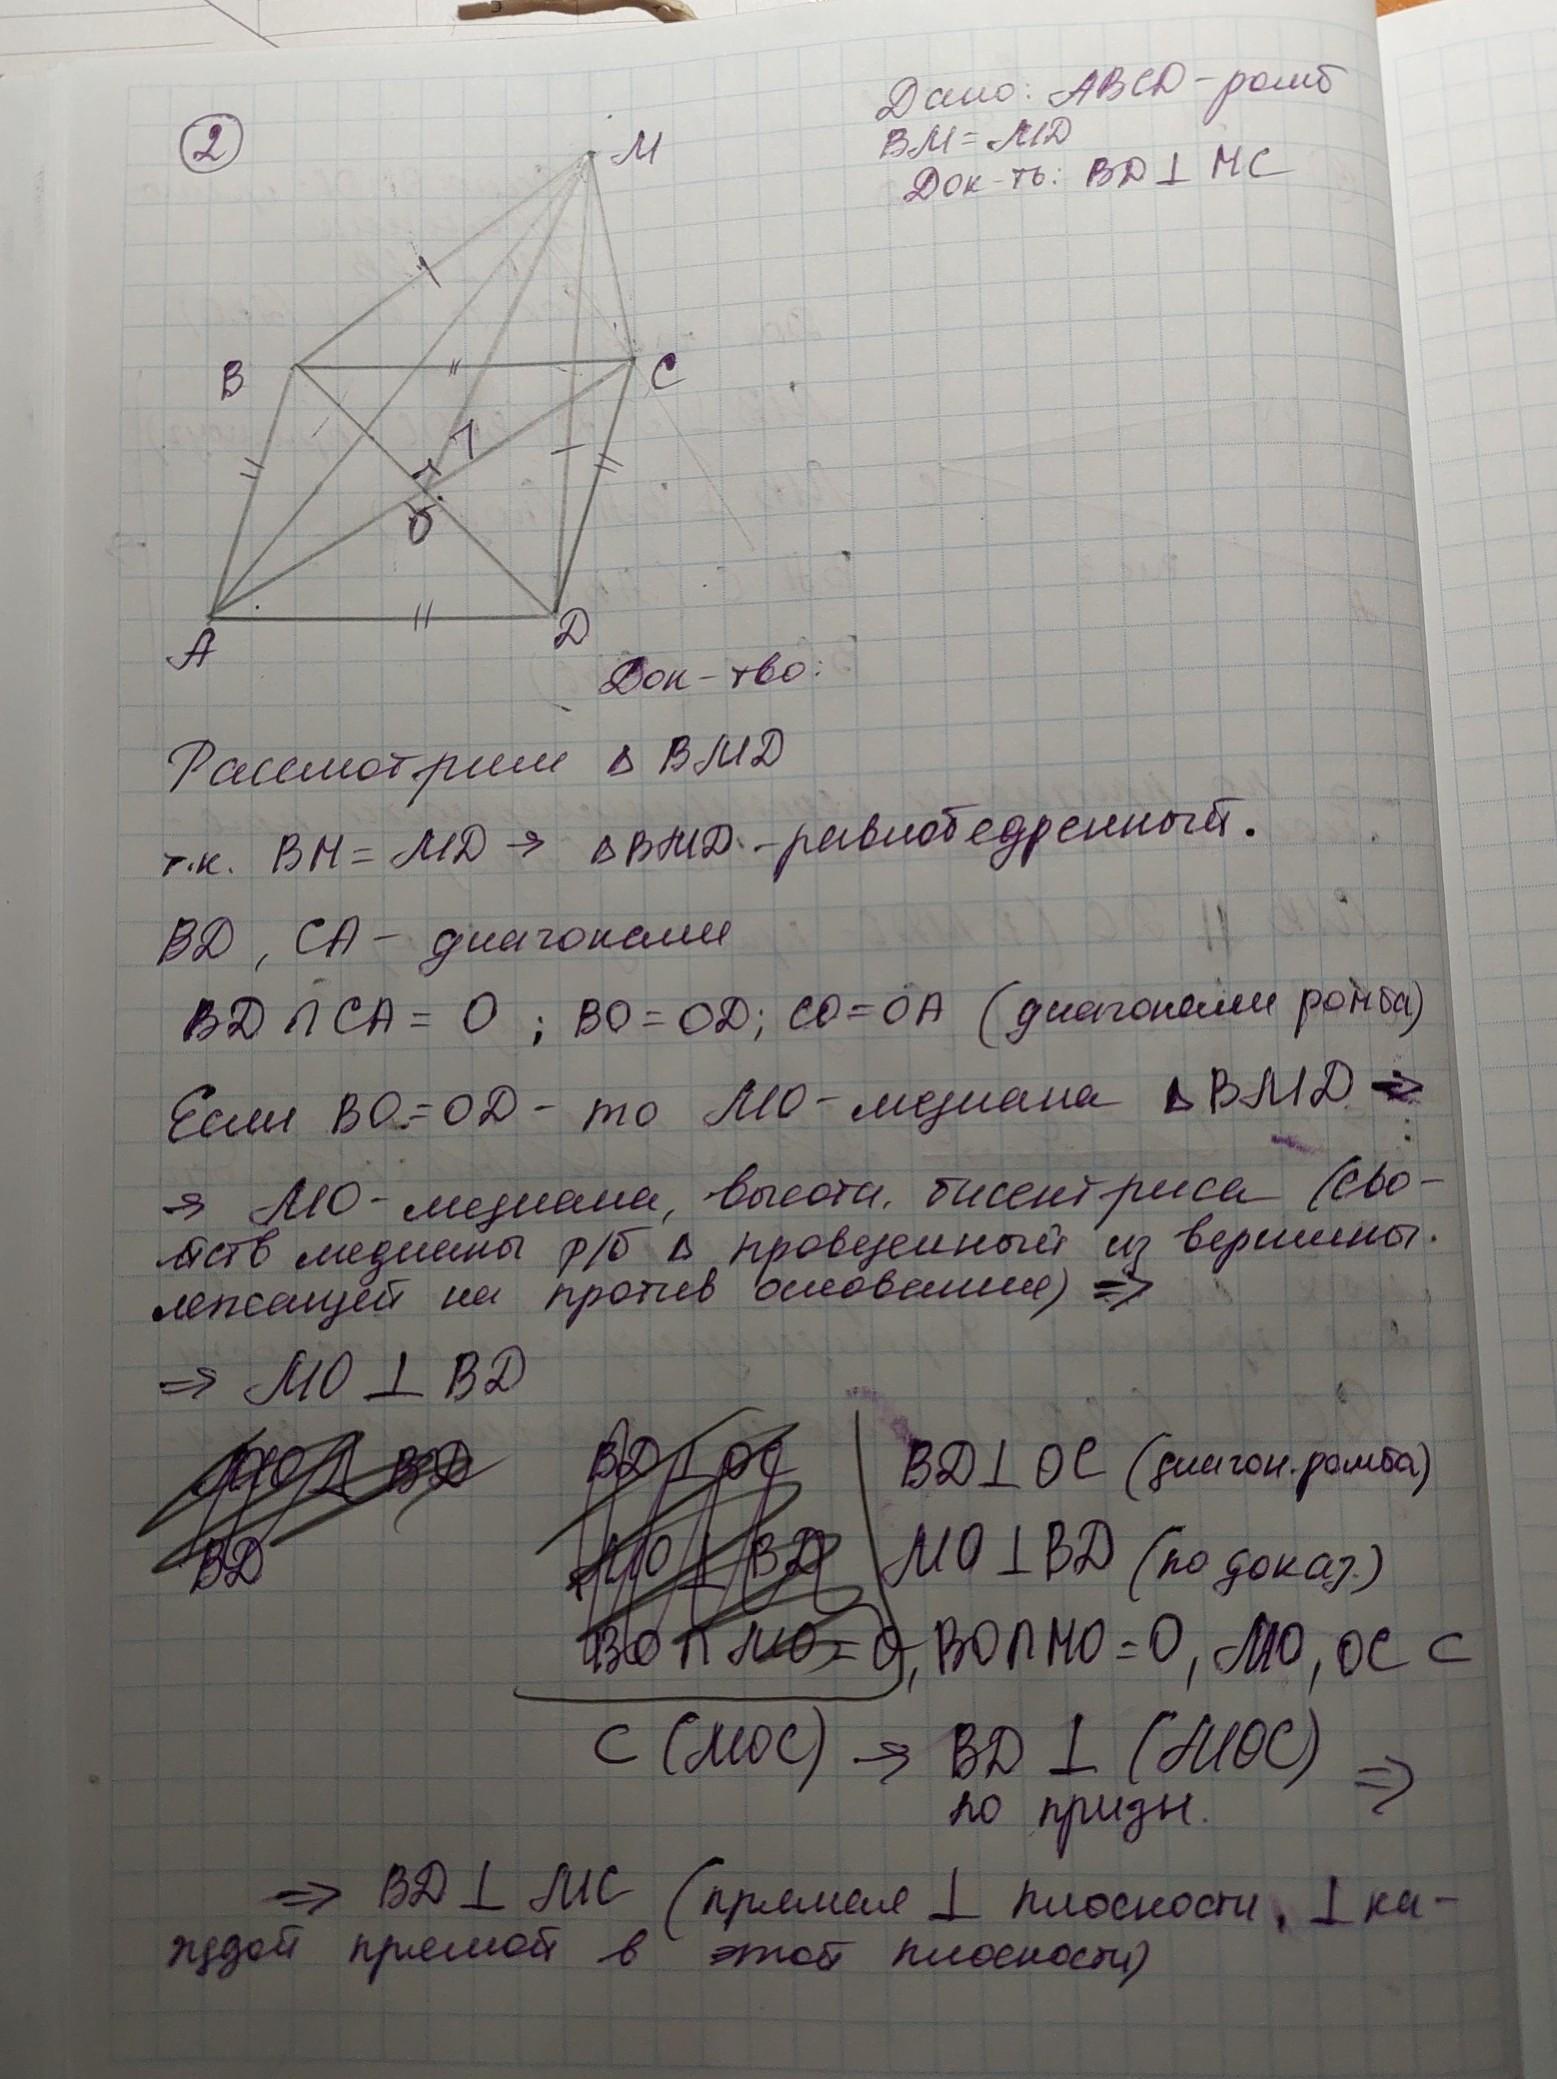 2
Дано: ABCD - ромб
BM = MD
Док-ть: BD ⊥ MC
M
B
C
O
A
D
Док-тво:
Рассмотрим Δ BMD
т.к. BM = MD → Δ BMD - равнобедренный.
BD, CA - диагонали
BD ∩ CA = O ; BO = OD; CO = OA (диагонали ромба)
Если BO = OD - то MO - медиана Δ BMD ⇒
→ MO - медиана, высота, биссектриса (сво-
йств медианы р/б Δ проведенный из вершины.
лежащей на против основания) ⇒
⇒ MO ⊥ BD
MO ⊥ BD
BD ⊥ OC
BD ⊥ OC (диагон. ромба)
BD
MO ⊥ BD
MO ⊥ BD (по доказ.)
BO ∩ MO = O, BO ∩ MO = O, MO, OC ⊂
⊂ (MOC) → BD ⊥ (MOC) ⇒
по призн.
⇒ BD ⊥ MC (прямая ⊥ плоскости, ⊥ ка-
ждой прямой в этой плоскости)